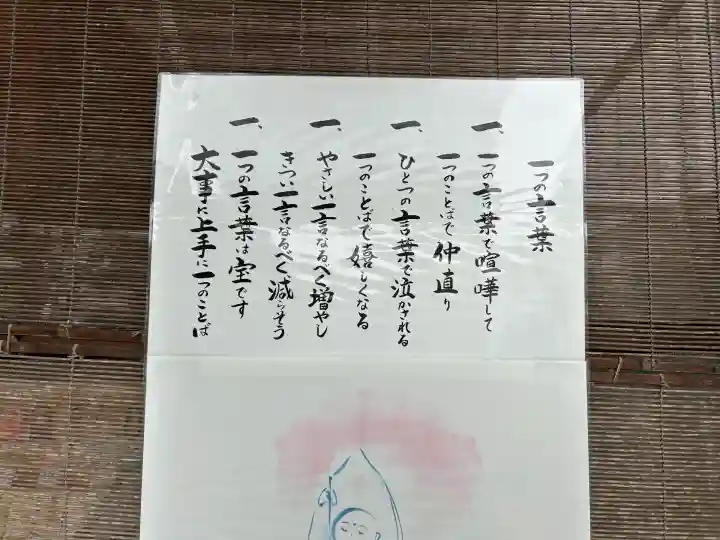 一つの言葉
一、一つの言葉で喧嘩して
一つのことばで仲直り
一、ひとつの言葉で泣かされる
一つのことばで嬉しくなる
一、やさしい一言なるべく増やし
きつい一言なるべく減らそう
一、一つの言葉は宝です
大事に上手に一つのことば